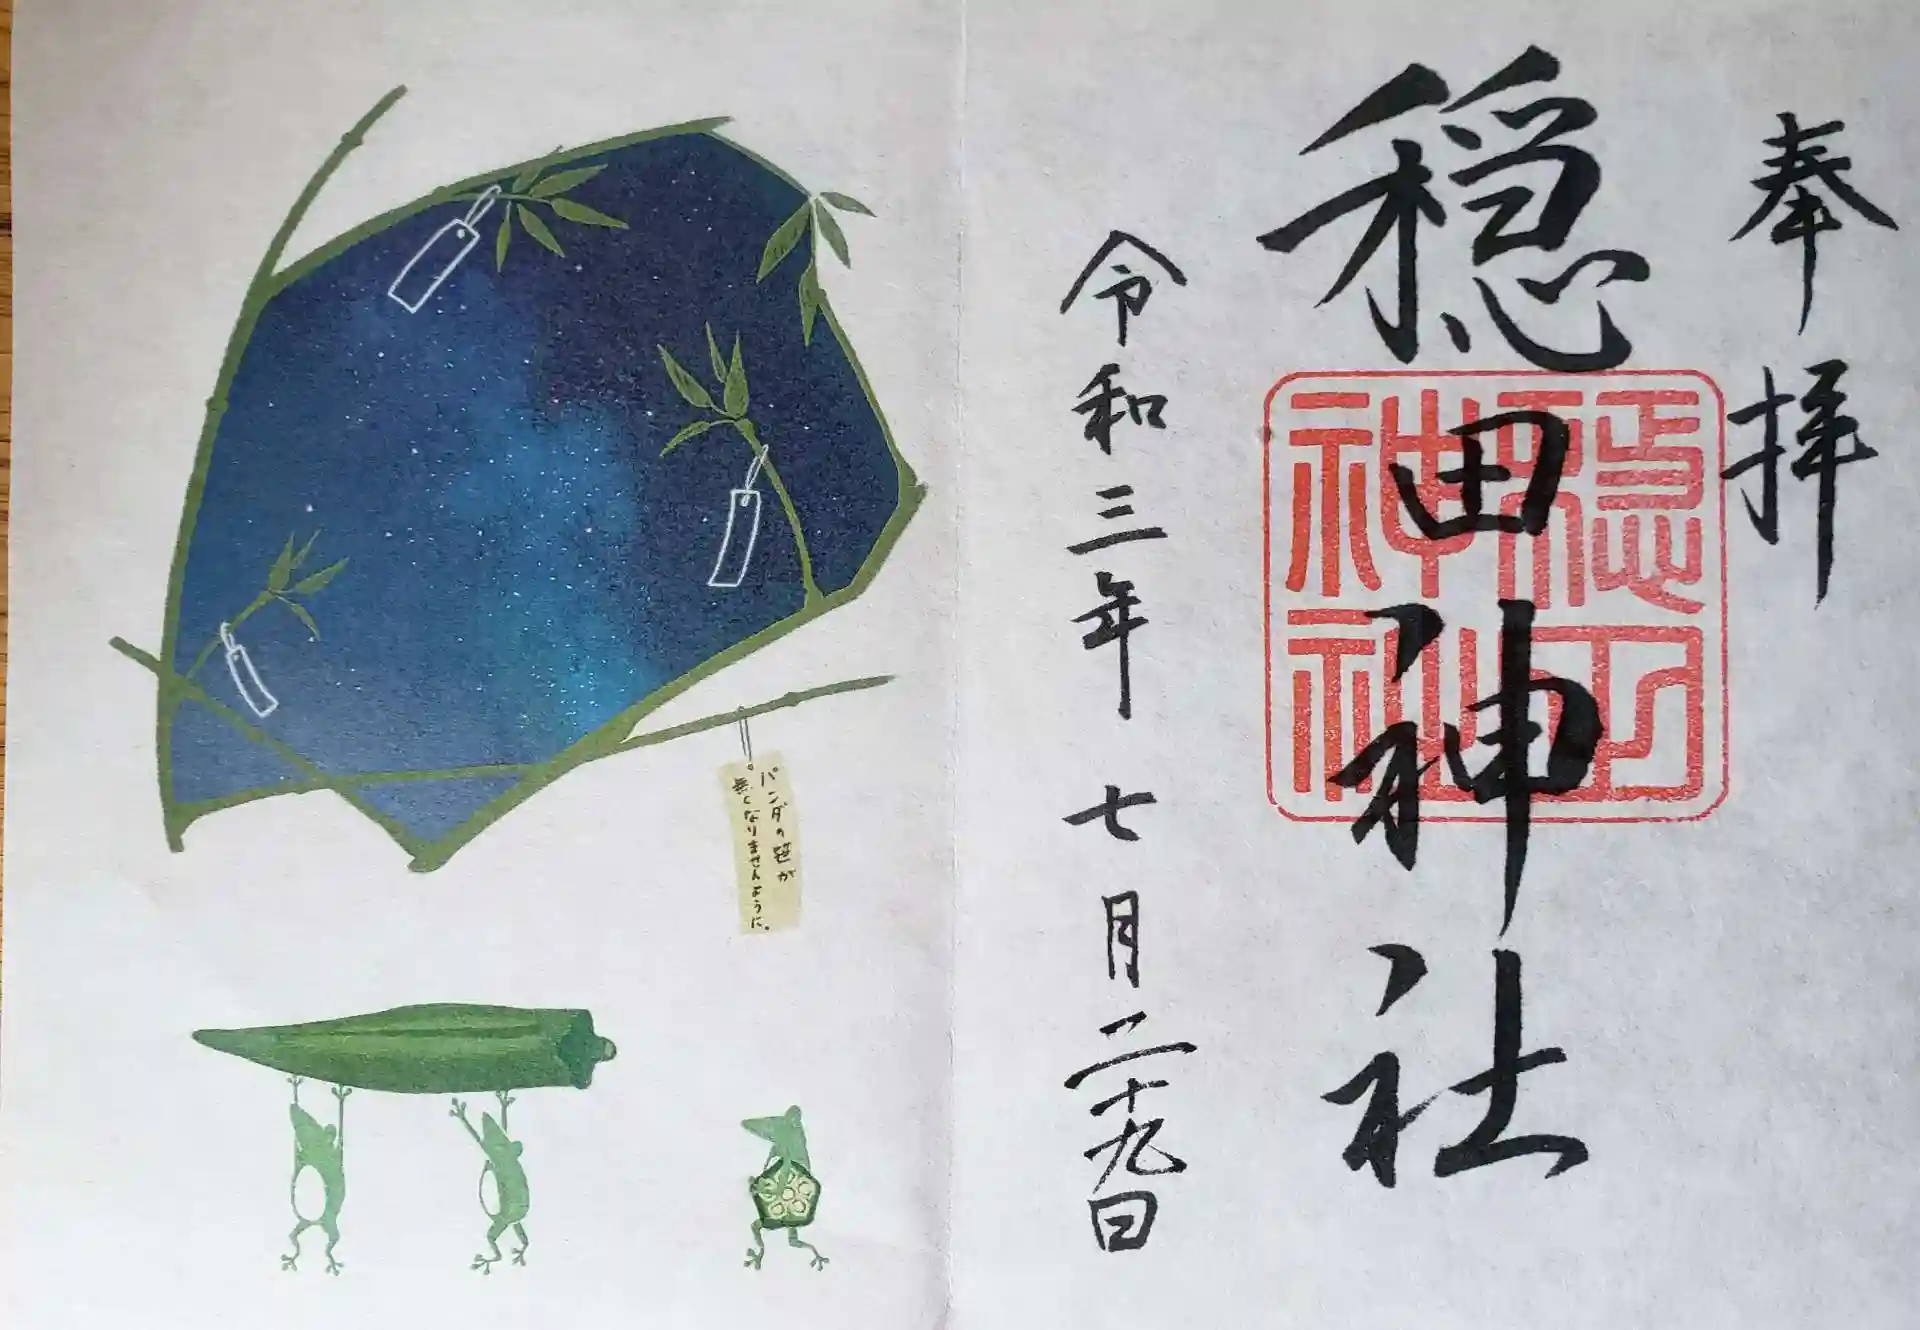 奉拝
穏田神社
穏田神社
令和三年七月二十九日
パンダの笹が
無くなりませんように。